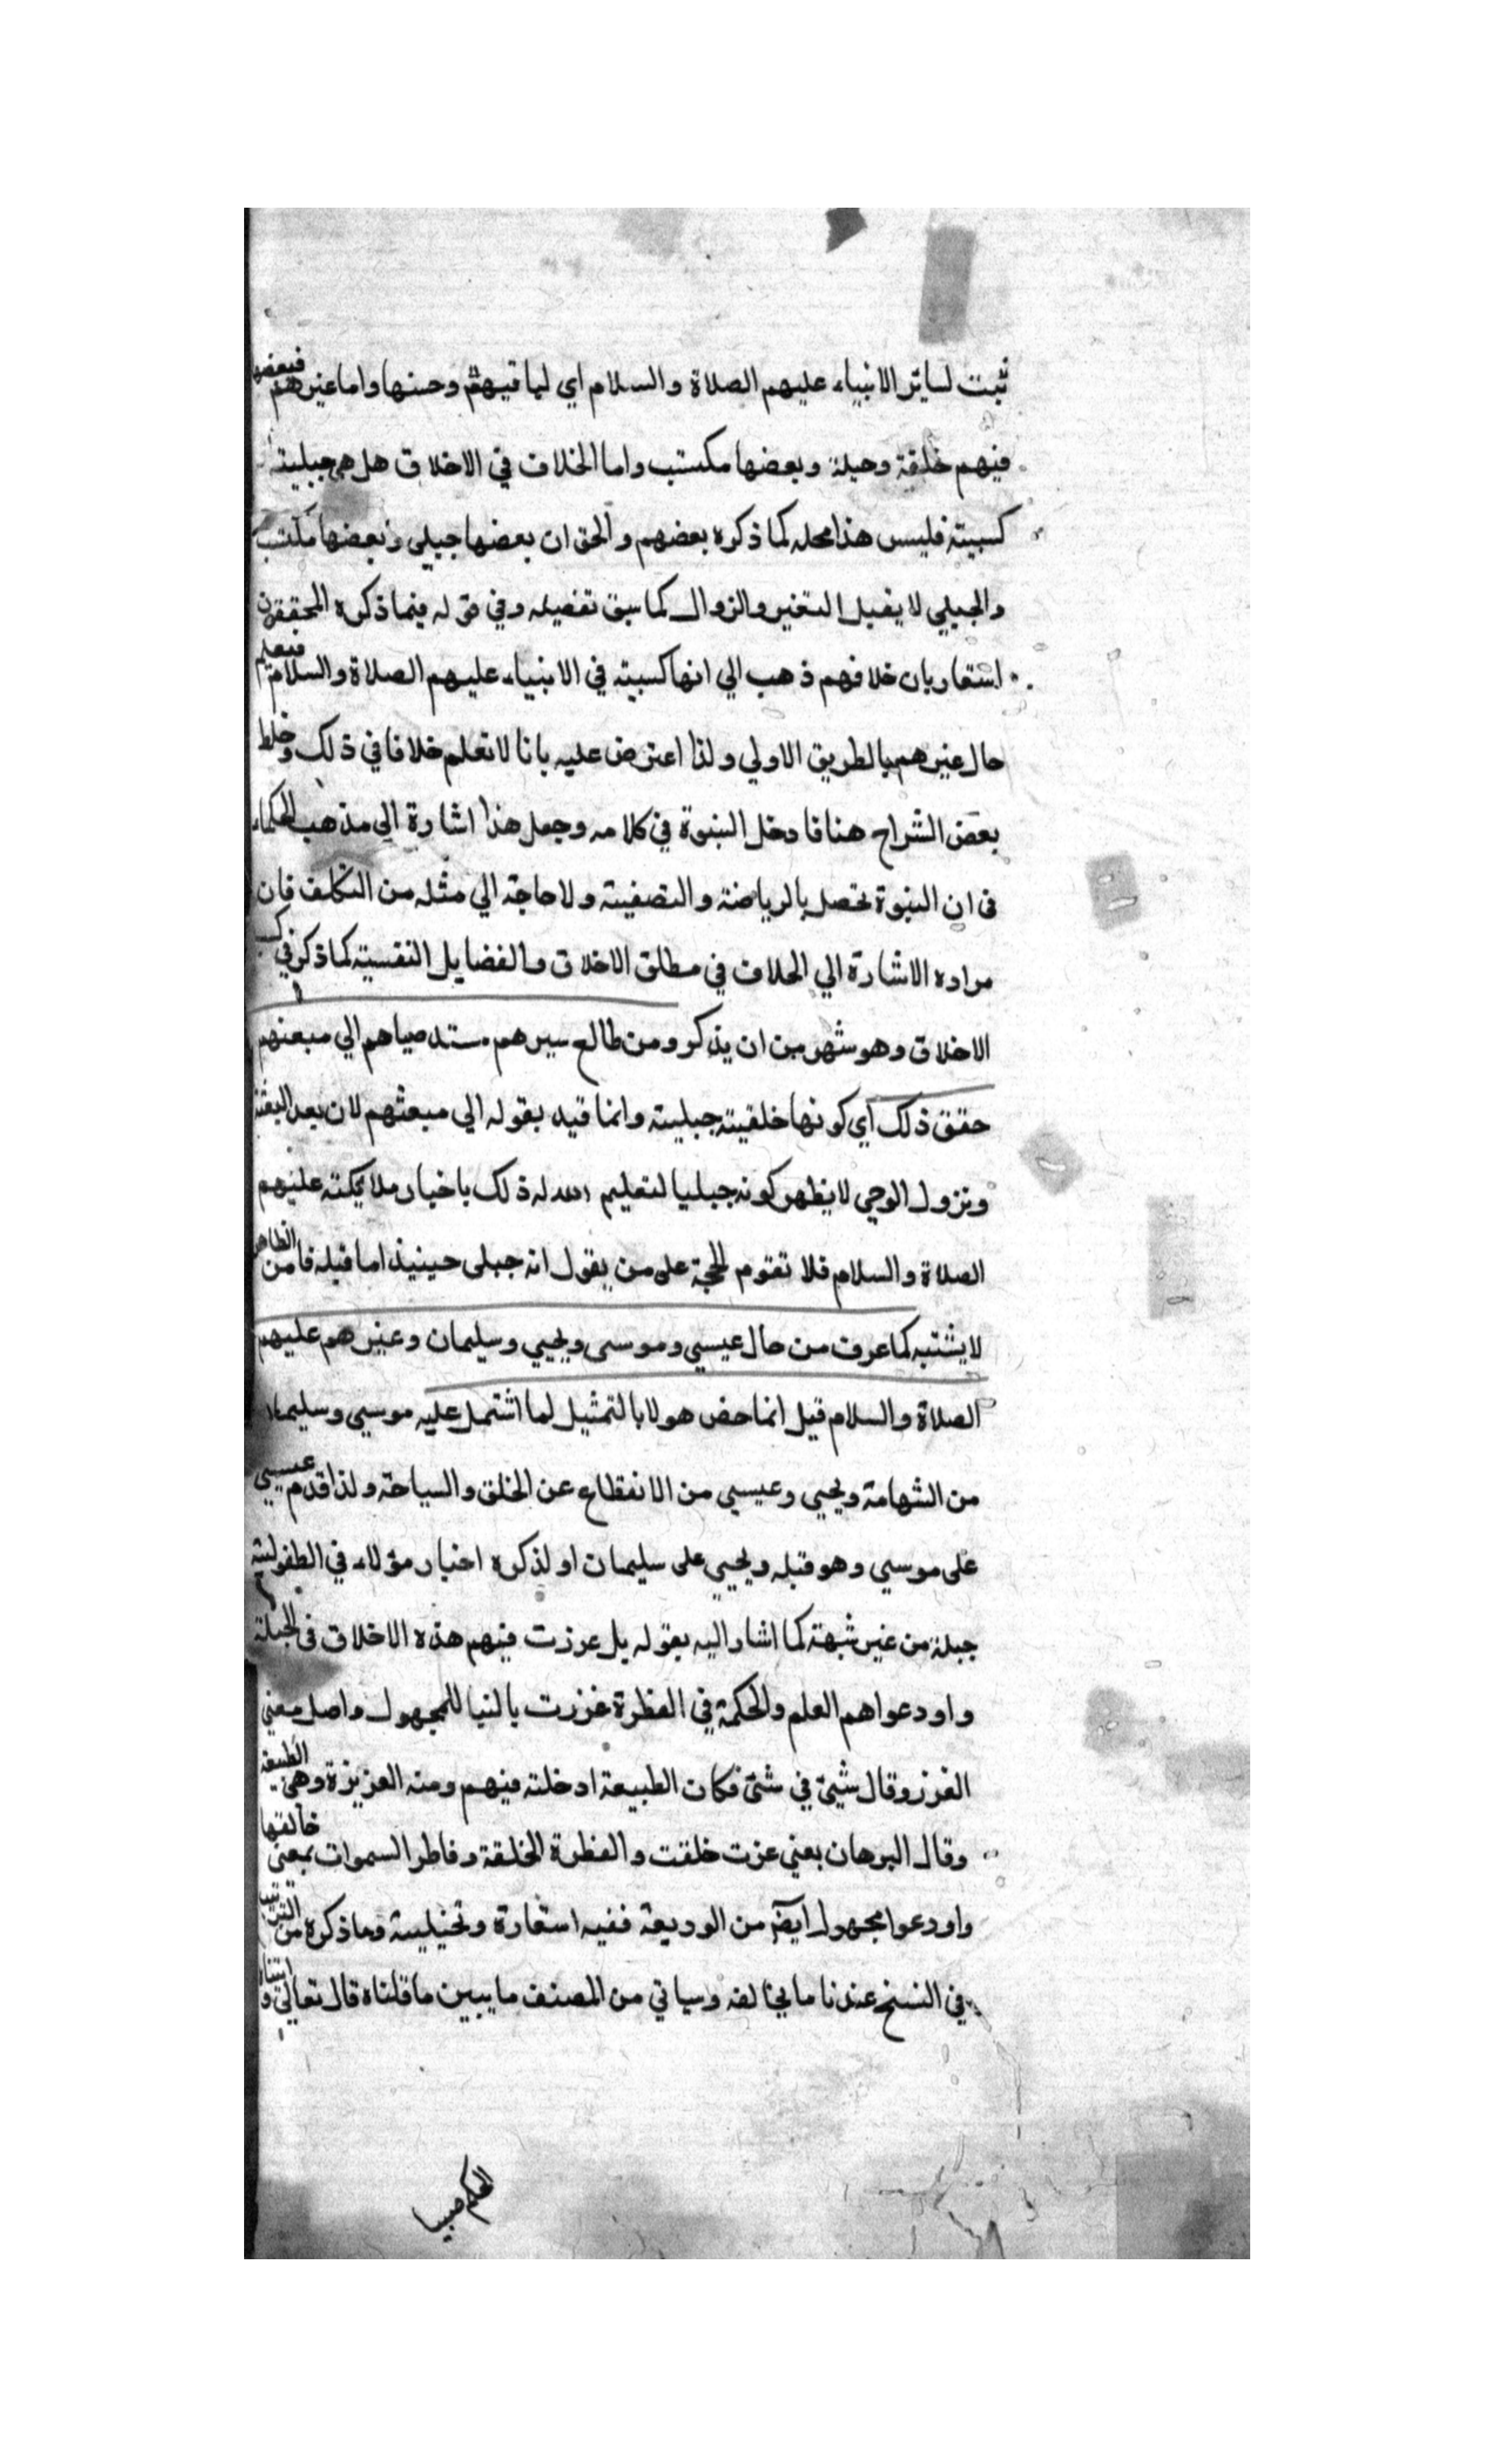 ثبت لساير الانبياء عليهم الصلاة والسلام اي لما فيهم وحسنها واما غيرهم فبعضها
فيهم خلقة وجبلة وبعضها مكتسب واما الخلاف في الاخلاق هل هي جبلية
كسبية فليس هذا محله كما ذكره بعضهم والحق ان بعضها جبلي وبعضها مكتسب
والجبلي لا يقبل التغير والزوال كما سبق تفصيله وفي قوله فيما ذكره المحققون
اشعار بان خلافهم ذهب الي انها كسبية في الانبياء عليهم الصلاة والسلام فيعلم
حال غيرهم بالطريق الاولي ولذا اعترض عليه بانا لا نعلم خلافا في ذلك وخلط
بعض الشراح هنا فادخل النبوة في كلامه وجعل هذا اشارة الي مذهب الحكماء
في ان النبوة تحصل بالرياضة والتصفية ولا حاجة الي مثله من التكلف فان
مراده الاشارة الي الخلاف في مطلق الاخلاق والفضايل النفسية كما ذكر في
الاخلاق وهو شهر من ان يذكر ومن طالع سيرهم منذ صباهم الي مبعثهم
حقق ذلك اي كونها خلقية جبلية وانما قيد بقوله الي مبعثهم لان بعد البعثة
ونزول الوحي لا يظهر كونه جبليا لتعليم الله له ذلك باخبار ملايكته عليهم
الصلاة والسلام فلا تقوم الحجة على من يقول انه جبلى حينيذ اما قبله فامن الظاهر
لا يشتبه كما عرف من حال عيسي وموسى ويحيي وسليمان وغيرهم عليهم
الصلاة والسلام قيل انما خص هولا بالتمثيل لما اشتمل عليه موسي وسليمان
من الشهامة ويحيي وعيسي من الانقطاع عن الخلق والسياحة ولذا قدم عيسي
على موسي وهو قبله ويحيي على سليمان او لذكره اخبار هؤلاء في الطفولية
جبلة من غير شبهة كما اشار اليه بقوله بل غرزت فيهم هذه الاخلاق في الجبلة
واودعوا هم العلم والحكمة في الفطرة غرزت بالبنا للمجهول واصل معني
الغرز وقال شيئ في شئ فكان الطبيعة ادخلته فيهم ومنه الغريزة وهي الطبيعة
وقال البرهان بعني غزت خلقت والفطرة الخلقة وفاطر السموات بمعني خالقها
واودعوا مجهول ايضا من الوديعة ففيه استعارة وتخييلية وما ذكره من الترتيب
في النسخ عندنا ما يخالفه وسياتي من المصنف ما يبين ما قلناه قال تعالي واتيناه
الحكم صبيا